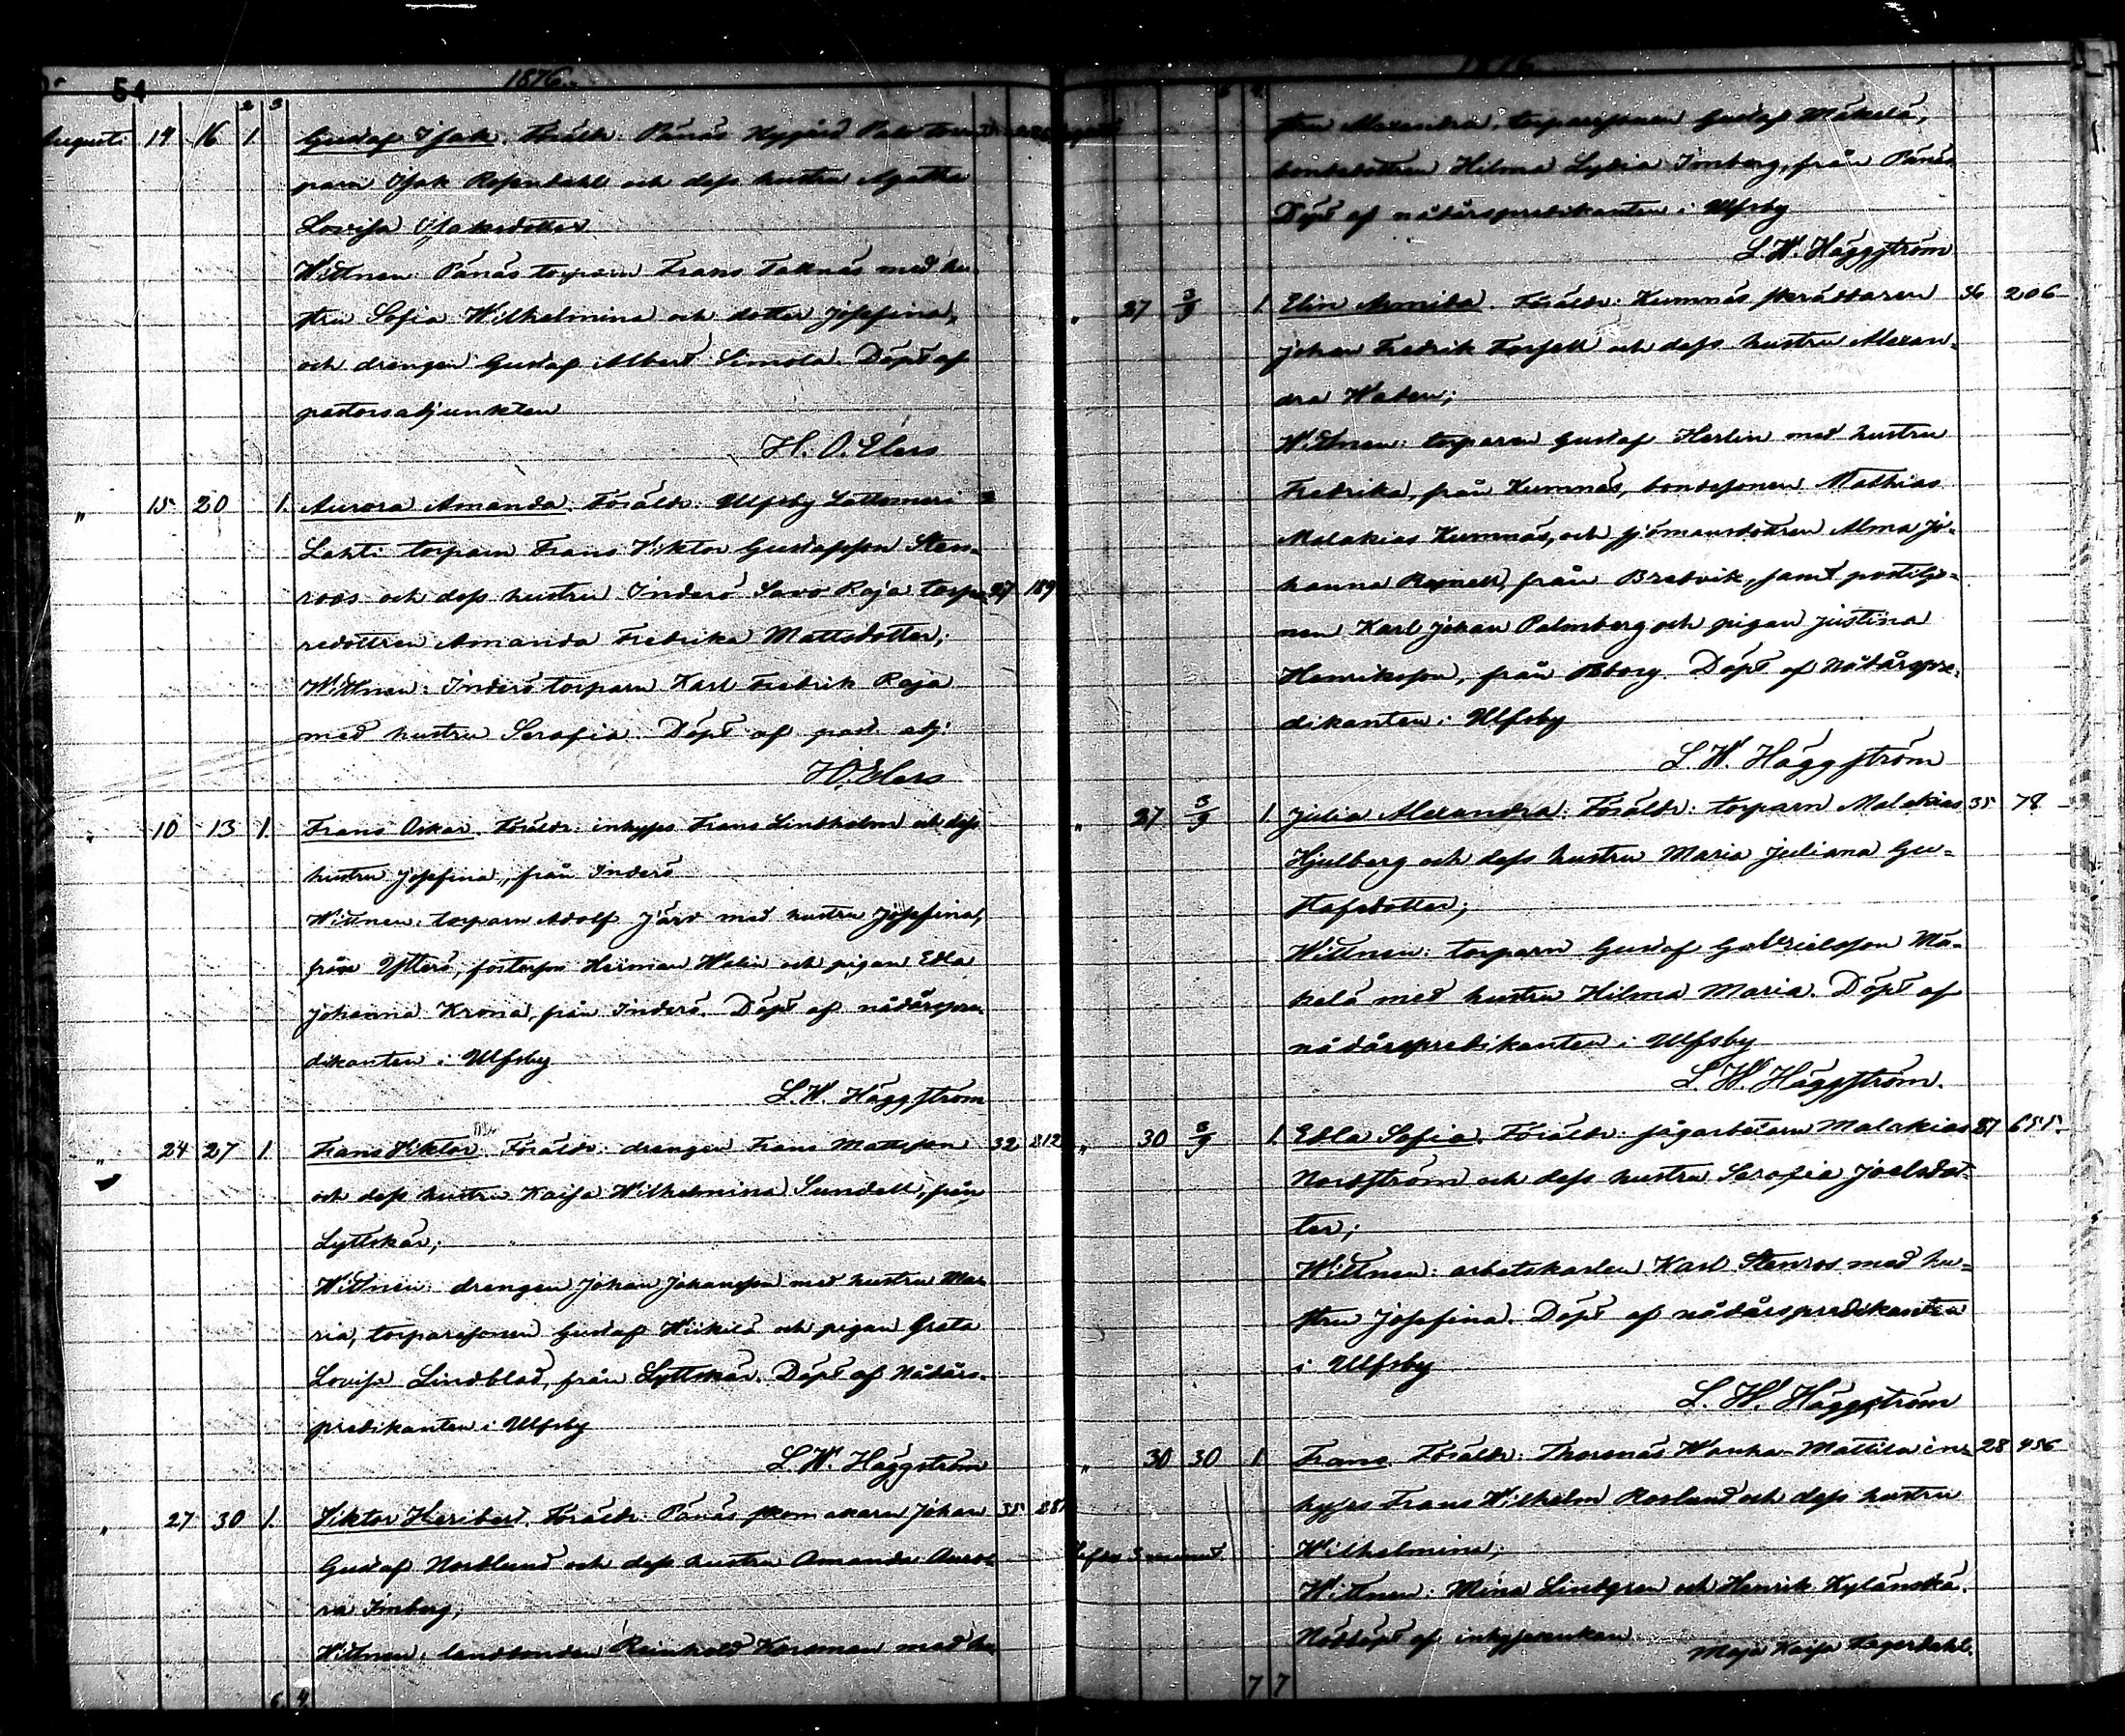 54
1876.
2 3
Augusti 14 16 1. Gustaf Isak. Föräldr: Pånäs Nygård Palo torparn Isak Rosendahl och dess hustru Agatha
Lovisa Isaksdotter
Wittnen: Pånäs torparn Frans Taknäs med hu-
stru Sofia Wilhelmina och dotter Josefina,
och drengen Gustaf Albert Simola. Döpt af
pastorsadjunkten
H. O. Elers
" 15 20 1. Aurora Amanda. Föräldr: Ulfsby Lattomeri
Lahti torparn Frans Viktor Gustafsson Sten-
roos och dess hustru Inderö Savo Raja torpa- 27 189
redottren Amanda Fredrika Mattsdotter;
Wittnen: Inderö torparn Karl Fredrik Raja
med hustru Serafia. Döpt af past. adj:
H.O. Elers
" 10 13 1. Frans Oskar. Föräldr: inhyses Frans Lindholm och dess
hustru Josefina, från Inderö
Wittnen: torparn Adolf Järv med hustru Josefina,
från Ytterö, fosterson Herman Walin och pigan Edla
Johanna Krona, från Inderö. Döpt af nådårspre-
dikanten i Ulfsby
L. W. Häggström
" 24 27 1. Frans Viktor. Föräldr: drengen Frans Mattsson 32 212
och dess hustru Kaisa Wilhelmina Sundell, från
Lyttskär;
Wittnen: drengen Johan Johansson med hustru Ma-
ria, torparesonen Gustaf Wiikilä och pigan Greta
Lovisa Lindblad, från Lyttskär. Döpt af Nådårs-
predikanten i Ulfsby
L. W. Häggström
" 27 30 1. Viktor Heribert. Föräldr: Pånäs skomakaren Johan 35 281
Gustaf Nordlund och dess hustru Amanda Auro-
ra Imberg;
Wittnen: landbonden Reinhold Korsman med hu-
6 4
1876
6 4
stru Alexandra, torparesonen Gustaf Mäkelä,
bondedottren Hilma Lydia Imberg, från Pånäs
Döpt af nådårspredikanten i Ulfsby
L. W. Häggström
" 27 3/9 1. Elin Armida. Föräldr: Kumnäs skräddaren 36 206
Johan Fredrik Forsell och dess hustru Alexan-
dra Waden;
Wittnen: torparen Gustaf Herlin med hustru
Fredrika, från Kumnäs, bondesonen Mathias
Malakias Kumnäs, och sjömansdottren Alma Jo-
hanna Rosnell, från Bredvik, samt postiljo-
nen Karl Johan Palmberg och pigan Justina
Henriksson, från Bborg. Döpt af Nådårspre-
dikanten i Ulfsby
L. W. Häggström
" 27 3/9 1. Julia Alexandra: Föräldr: torparn Malakias 35 78
Hjulberg och dess hustru Maria Juliana Gu-
stafsdotter;
Wittnen: torparn Gustaf Gabrielsson Mä-
kelä med hustru Hilma Maria. Döpt af
nådårspredikanten i Ulfsby
L. W. Häggström.
" 30 3/9 1. Edla Sofia. Föräldr: sågarbetarn Malakias 27 655.
Nordström och dess hustru Serafia Joelsdot-
ter;
Wittnen: arbetskarlen Karl Stenros med hu-
stru Josefina. Döpt af nådårspredikanten
i Ulfsby
L. W. Häggström
" 30 30 1 Frans. Föräldr: Thorsnäs Wanha-Mattila in- 28 456
hyses Frans Wilhelm Roslund och dess hustru
Wilhelmina;
Wittnen: Mina Lindgren och Henrik Kylänskä.
Nöddöpt af inhysesenkan Maja Kaisa Fagerdahl.
7 7